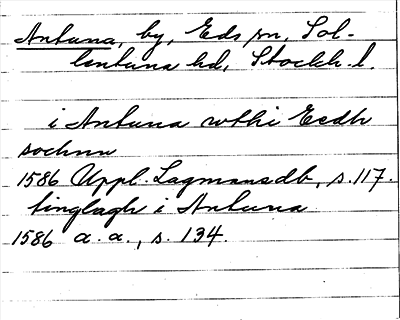 Antuna, by, Eds sn, Sol-
lentuna hd, Stockh. l.
i Antuna wthi Eedh
sochnn
1586 Uppl. Lagmansdb, s. 117.
tinglagh i Antuna
1586 a. a., s. 134.